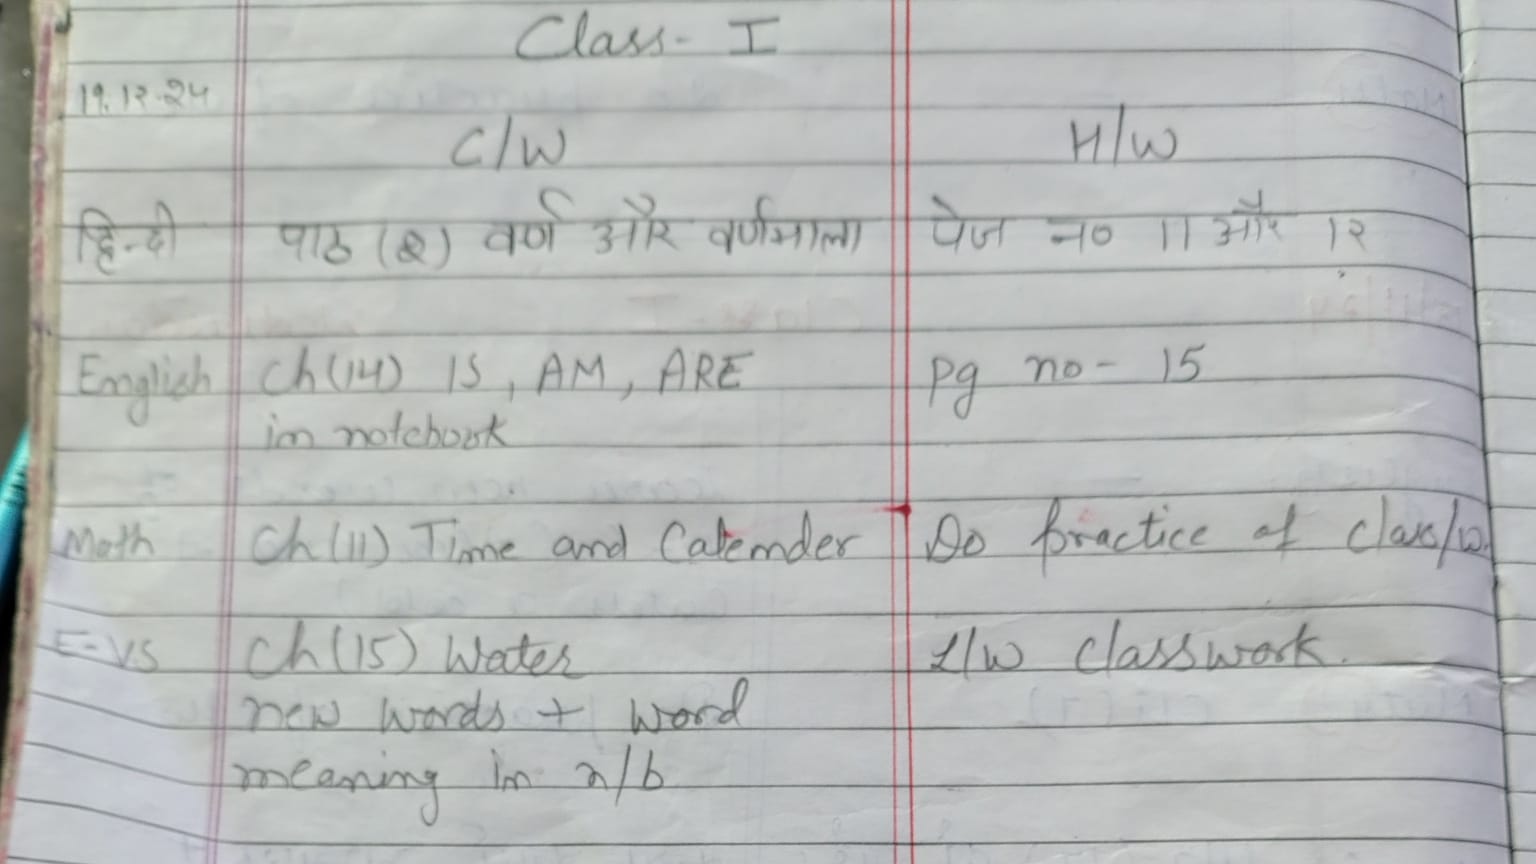 Class- I
19.12.24
C/W H/W
हिन्दी पाठ (२) वर्ण और वर्णमाला पेज न० 11 और 12
English Ch(14) IS, AM, ARE pg no- 15
in notebook
Math Ch(11) Time and Calender Do practice of class/w.
E-VS Ch(15) Water L/W classwork.
new words + word
meaning in n/b